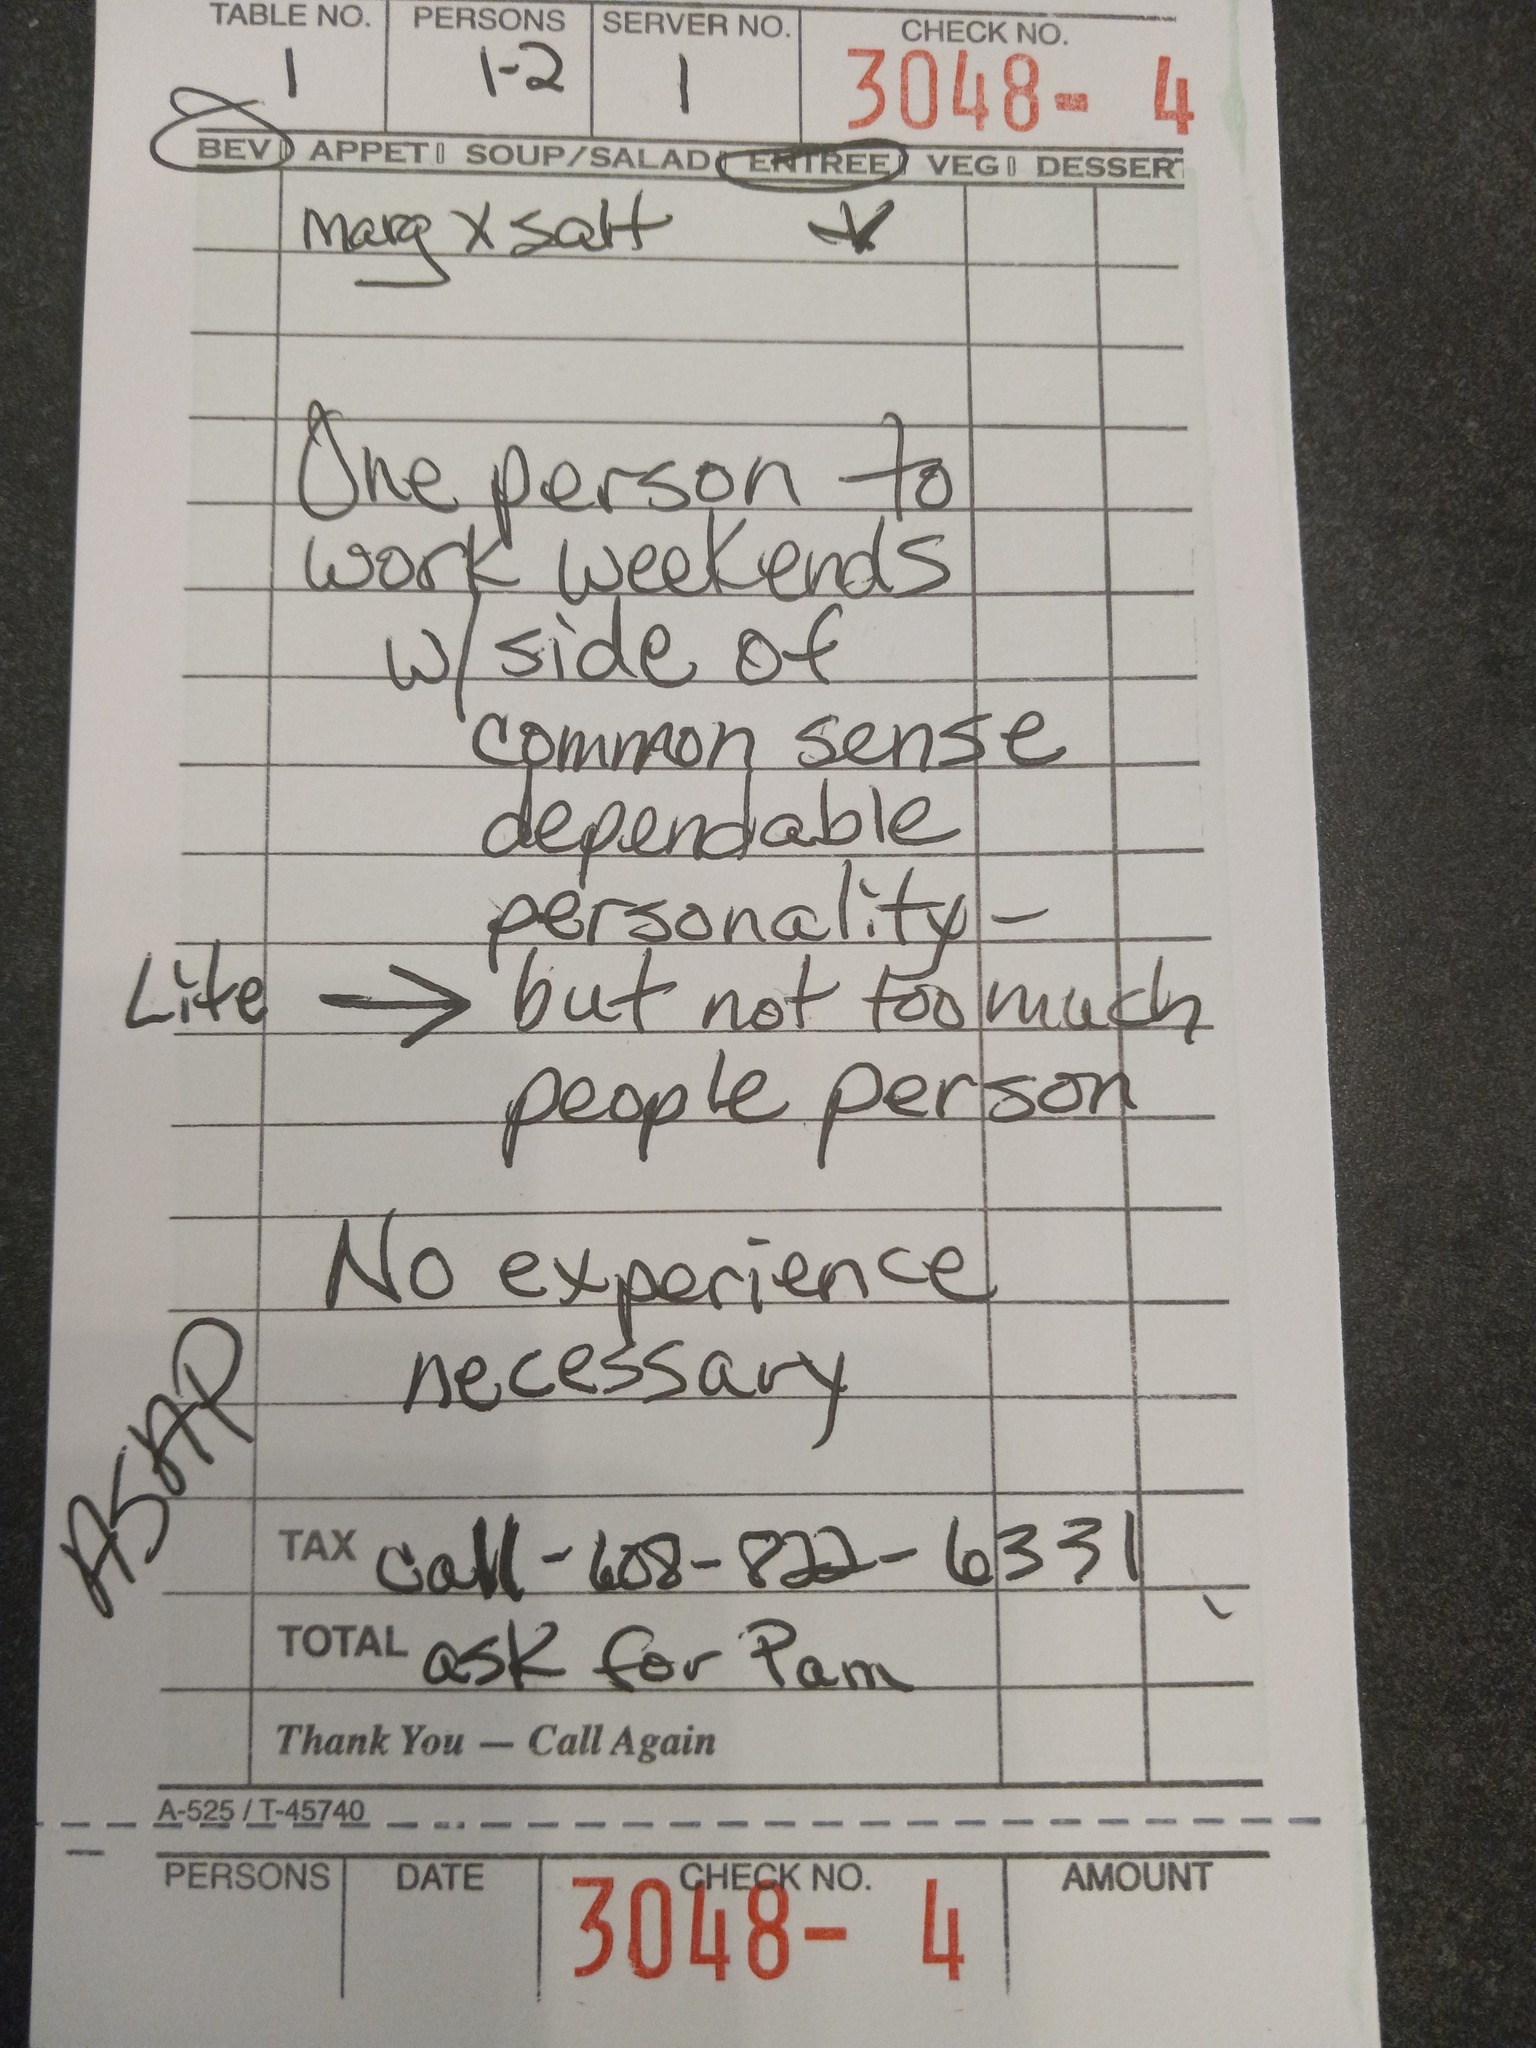 TABLE NO. PERSONS SERVER NO. CHECK NO.
1 1-2 1 3048- 4
BEV APPET SOUP/SALAD ENTREE VEG DESSERT
marg x salt
One person to
work weekends
w/ side of
common sense
dependable
personality -
Lite → but not too much
people person
No experience
necessary
ASAP
TAX call - 608-822-6331
TOTAL ask for Pam
Thank You — Call Again
A-525 / T-45740
PERSONS DATE CHECK NO. AMOUNT
3048- 4